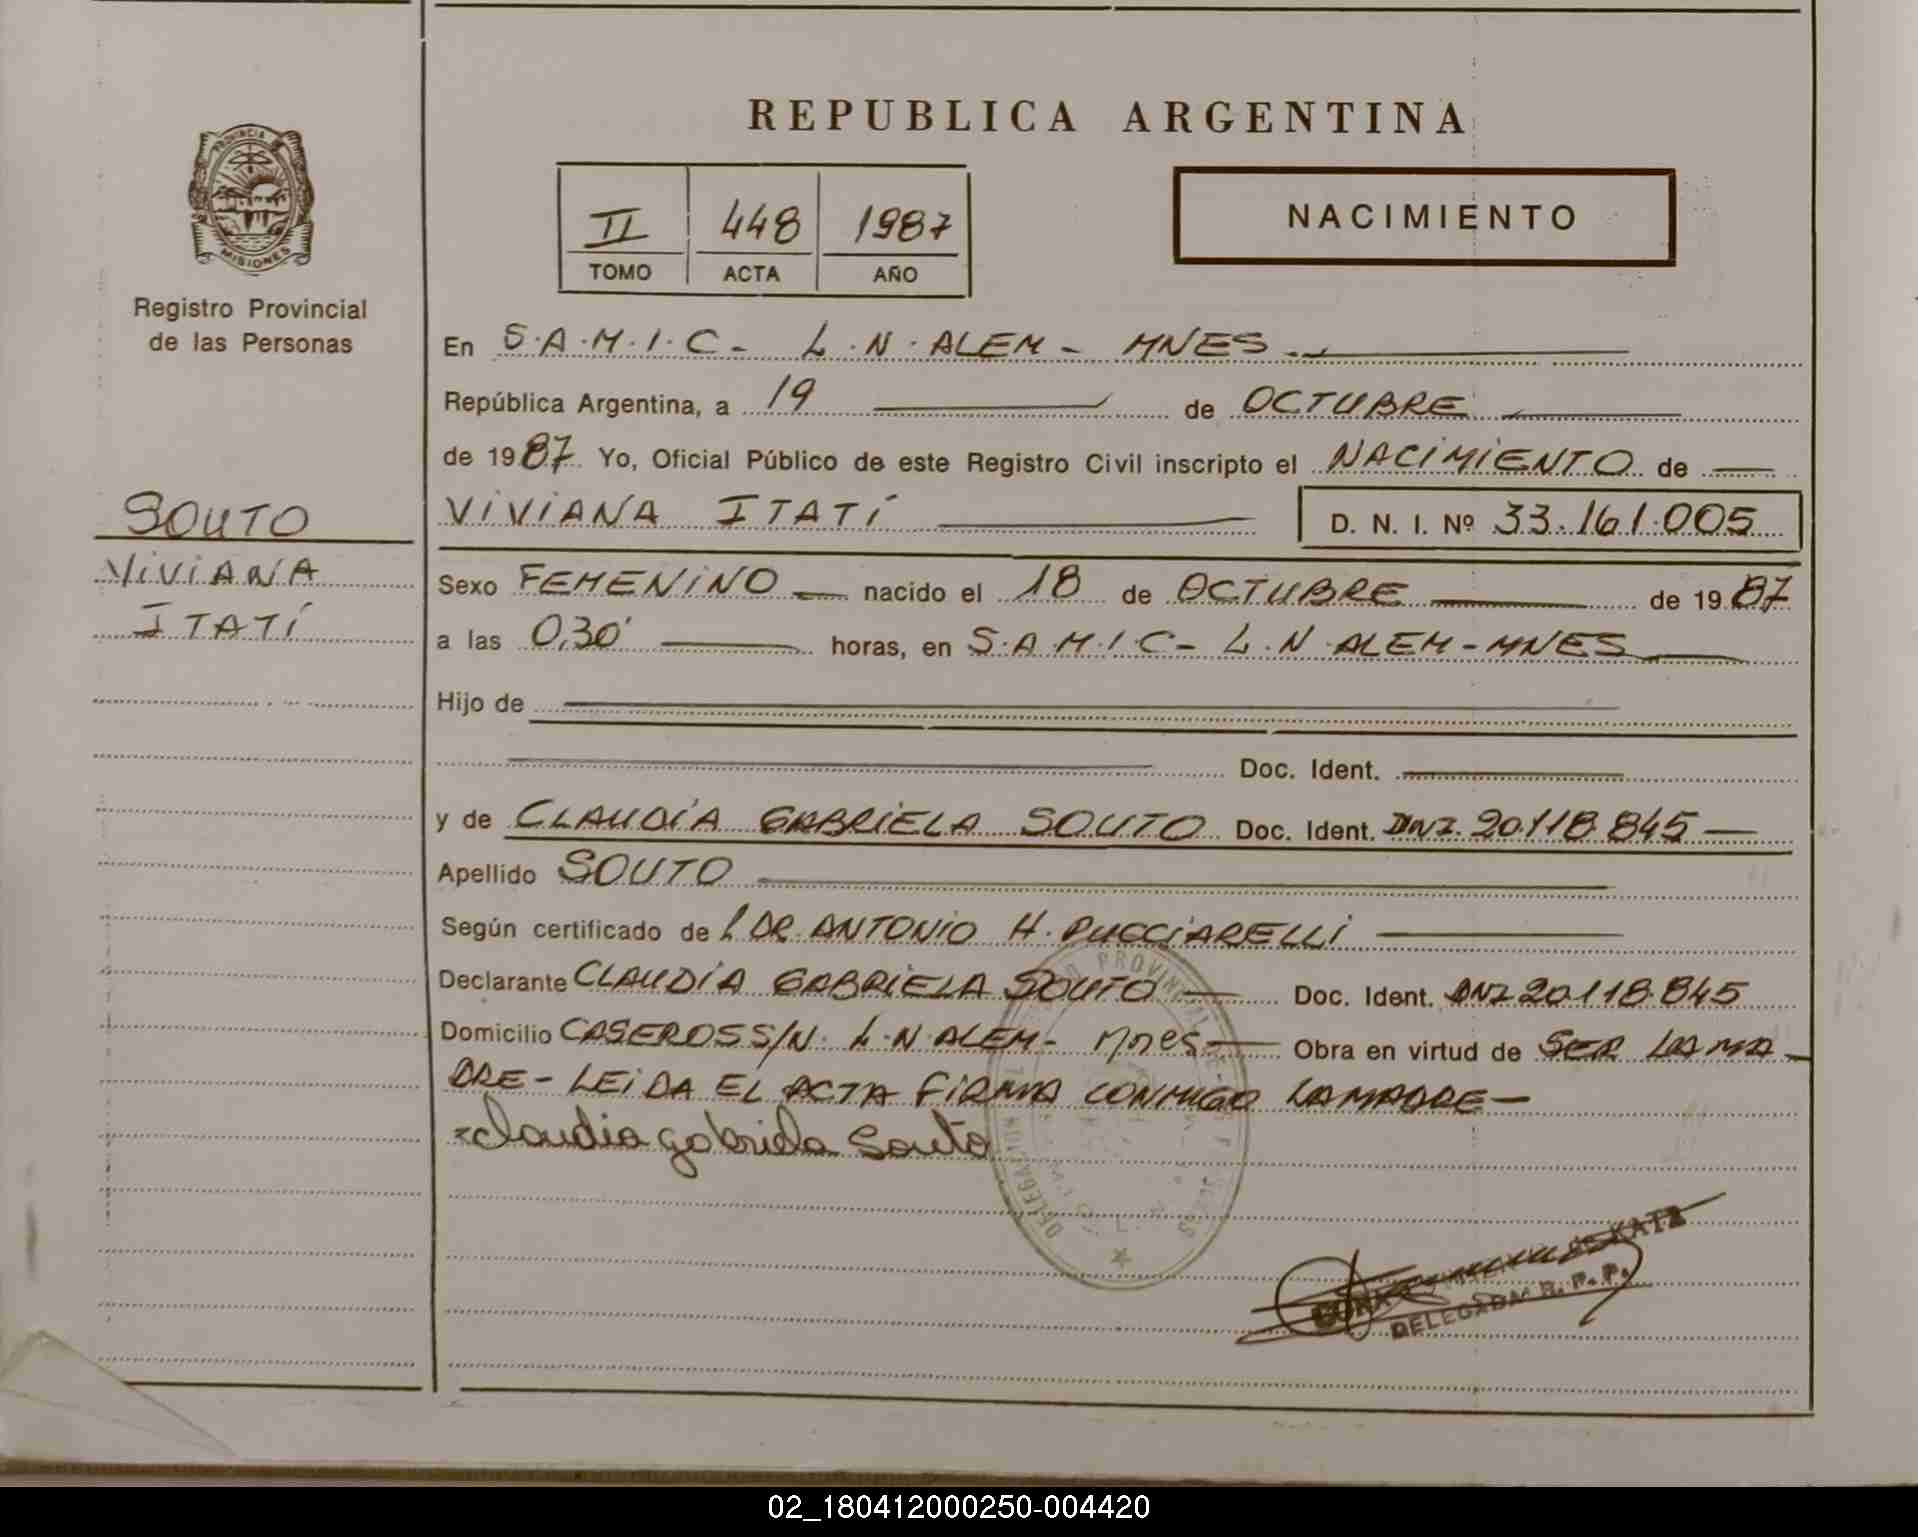 REPUBLICA ARGENTINA
PROVINCIA
MISIONES
Registro Provincial
de las Personas
II 448 1987
TOMO ACTA AÑO
NACIMIENTO
SOUTO
VIVIANA
ITATÍ
En S.A.M.I.C- L.N.ALEM- MNES.
República Argentina, a 19 de OCTUBRE
de 1987 Yo, Oficial Público de este Registro Civil inscripto el NACIMIENTO de
VIVIANA ITATÍ D. N. I. Nº 33.161.005
Sexo FEMENINO nacido el 18 de OCTUBRE de 1987
a las 0,30' horas, en S.A.M.I.C- L.N.ALEM-MNES
Hijo de
Doc. Ident.
y de CLAUDIA GABRIELA SOUTO Doc. Ident. DNI. 20.118.845
Apellido SOUTO
Según certificado de DR. ANTONIO H. PUCCIARELLI
Declarante CLAUDIA GABRIELA SOUTO Doc. Ident. DNI 20.118.845
Domicilio CASEROS S/N. L.N.ALEM- Mnes Obra en virtud de SER LA MA
DRE- LEIDA EL ACTA FIRMA CONMIGO LA MADRE-
Claudia gabriela Souto
DELEGADA R. P. P.
02_180412000250-004420